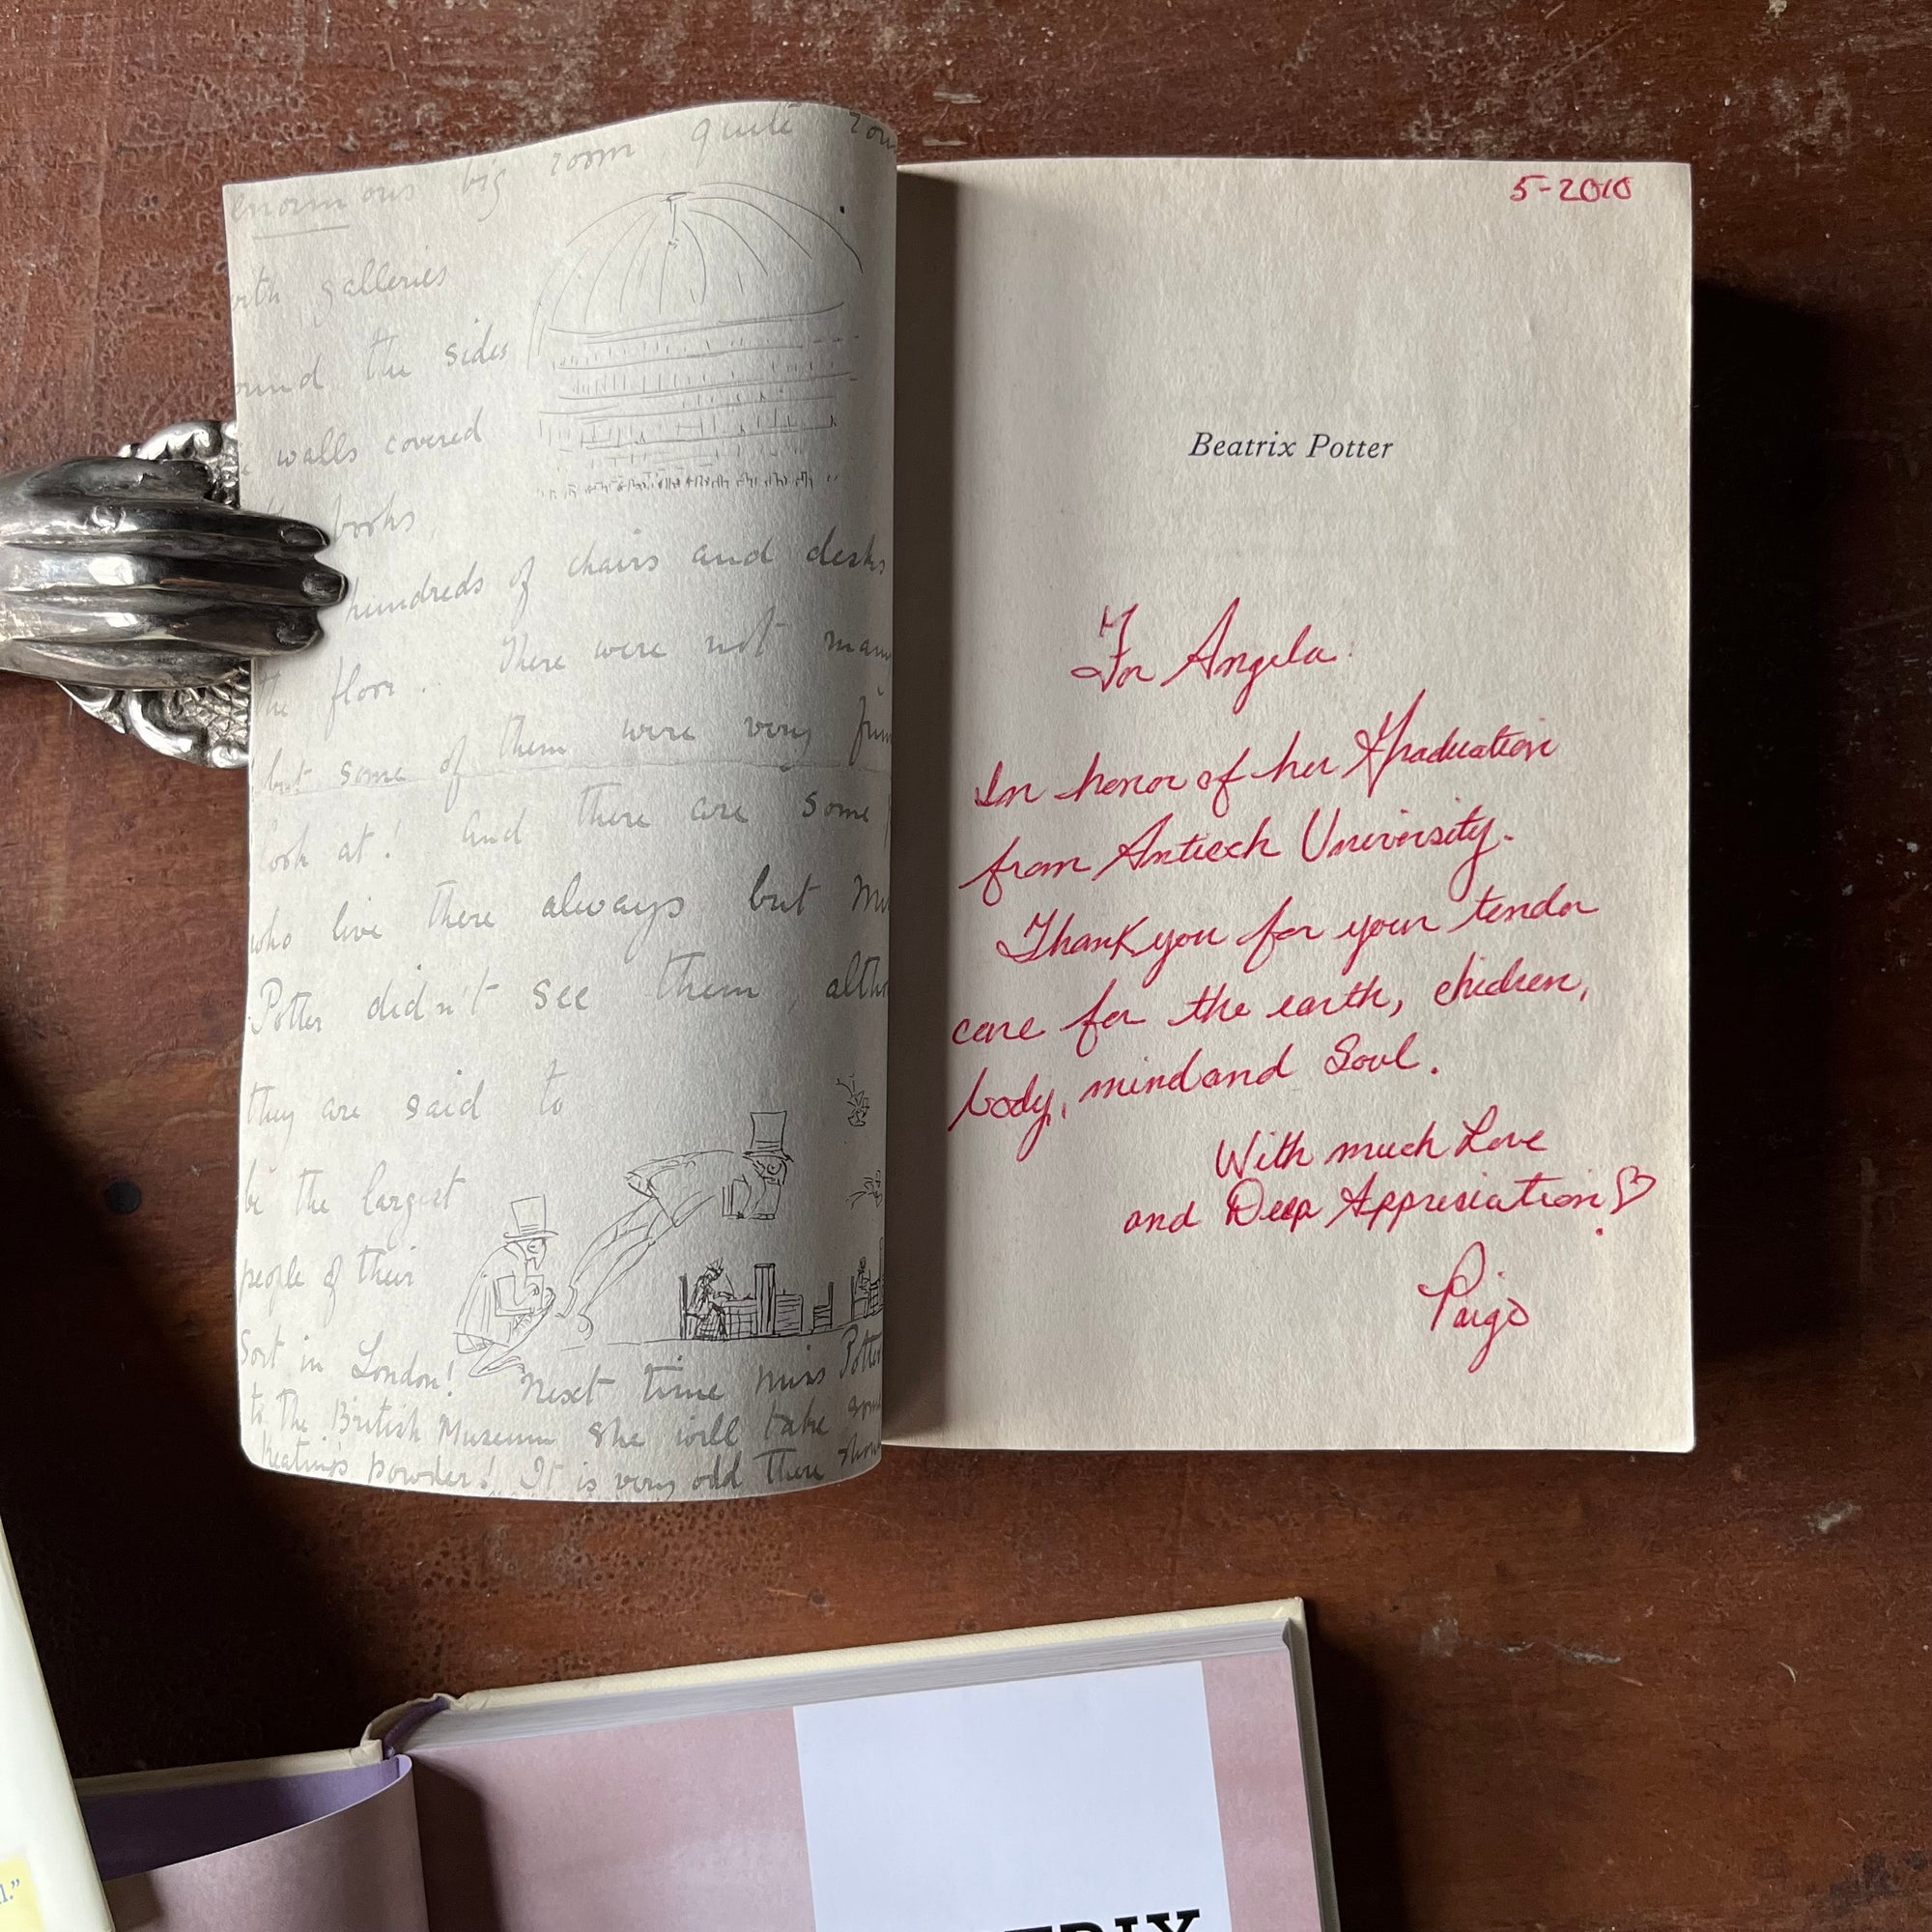 enormous big room quite
galleries
the sides
walls covered
books,
hundreds of chairs and desks
the floor. There were not
but some of them were very
look at! And there are some
who live there always but
Potter didn't see them, altho
they are said to
be the largest
people of their
sort in London! Next time Miss Potter
to the British Museum she will take some
Keating's powder! It is very odd there
5-2010
Beatrix Potter
For Angela:
In honor of her Graduation
from Antioch University.
Thank you for your tender
care for the earth, children,
body, mind and Soul.
With much Love
and Deep Appreciation
Paige
TRIX
l.”